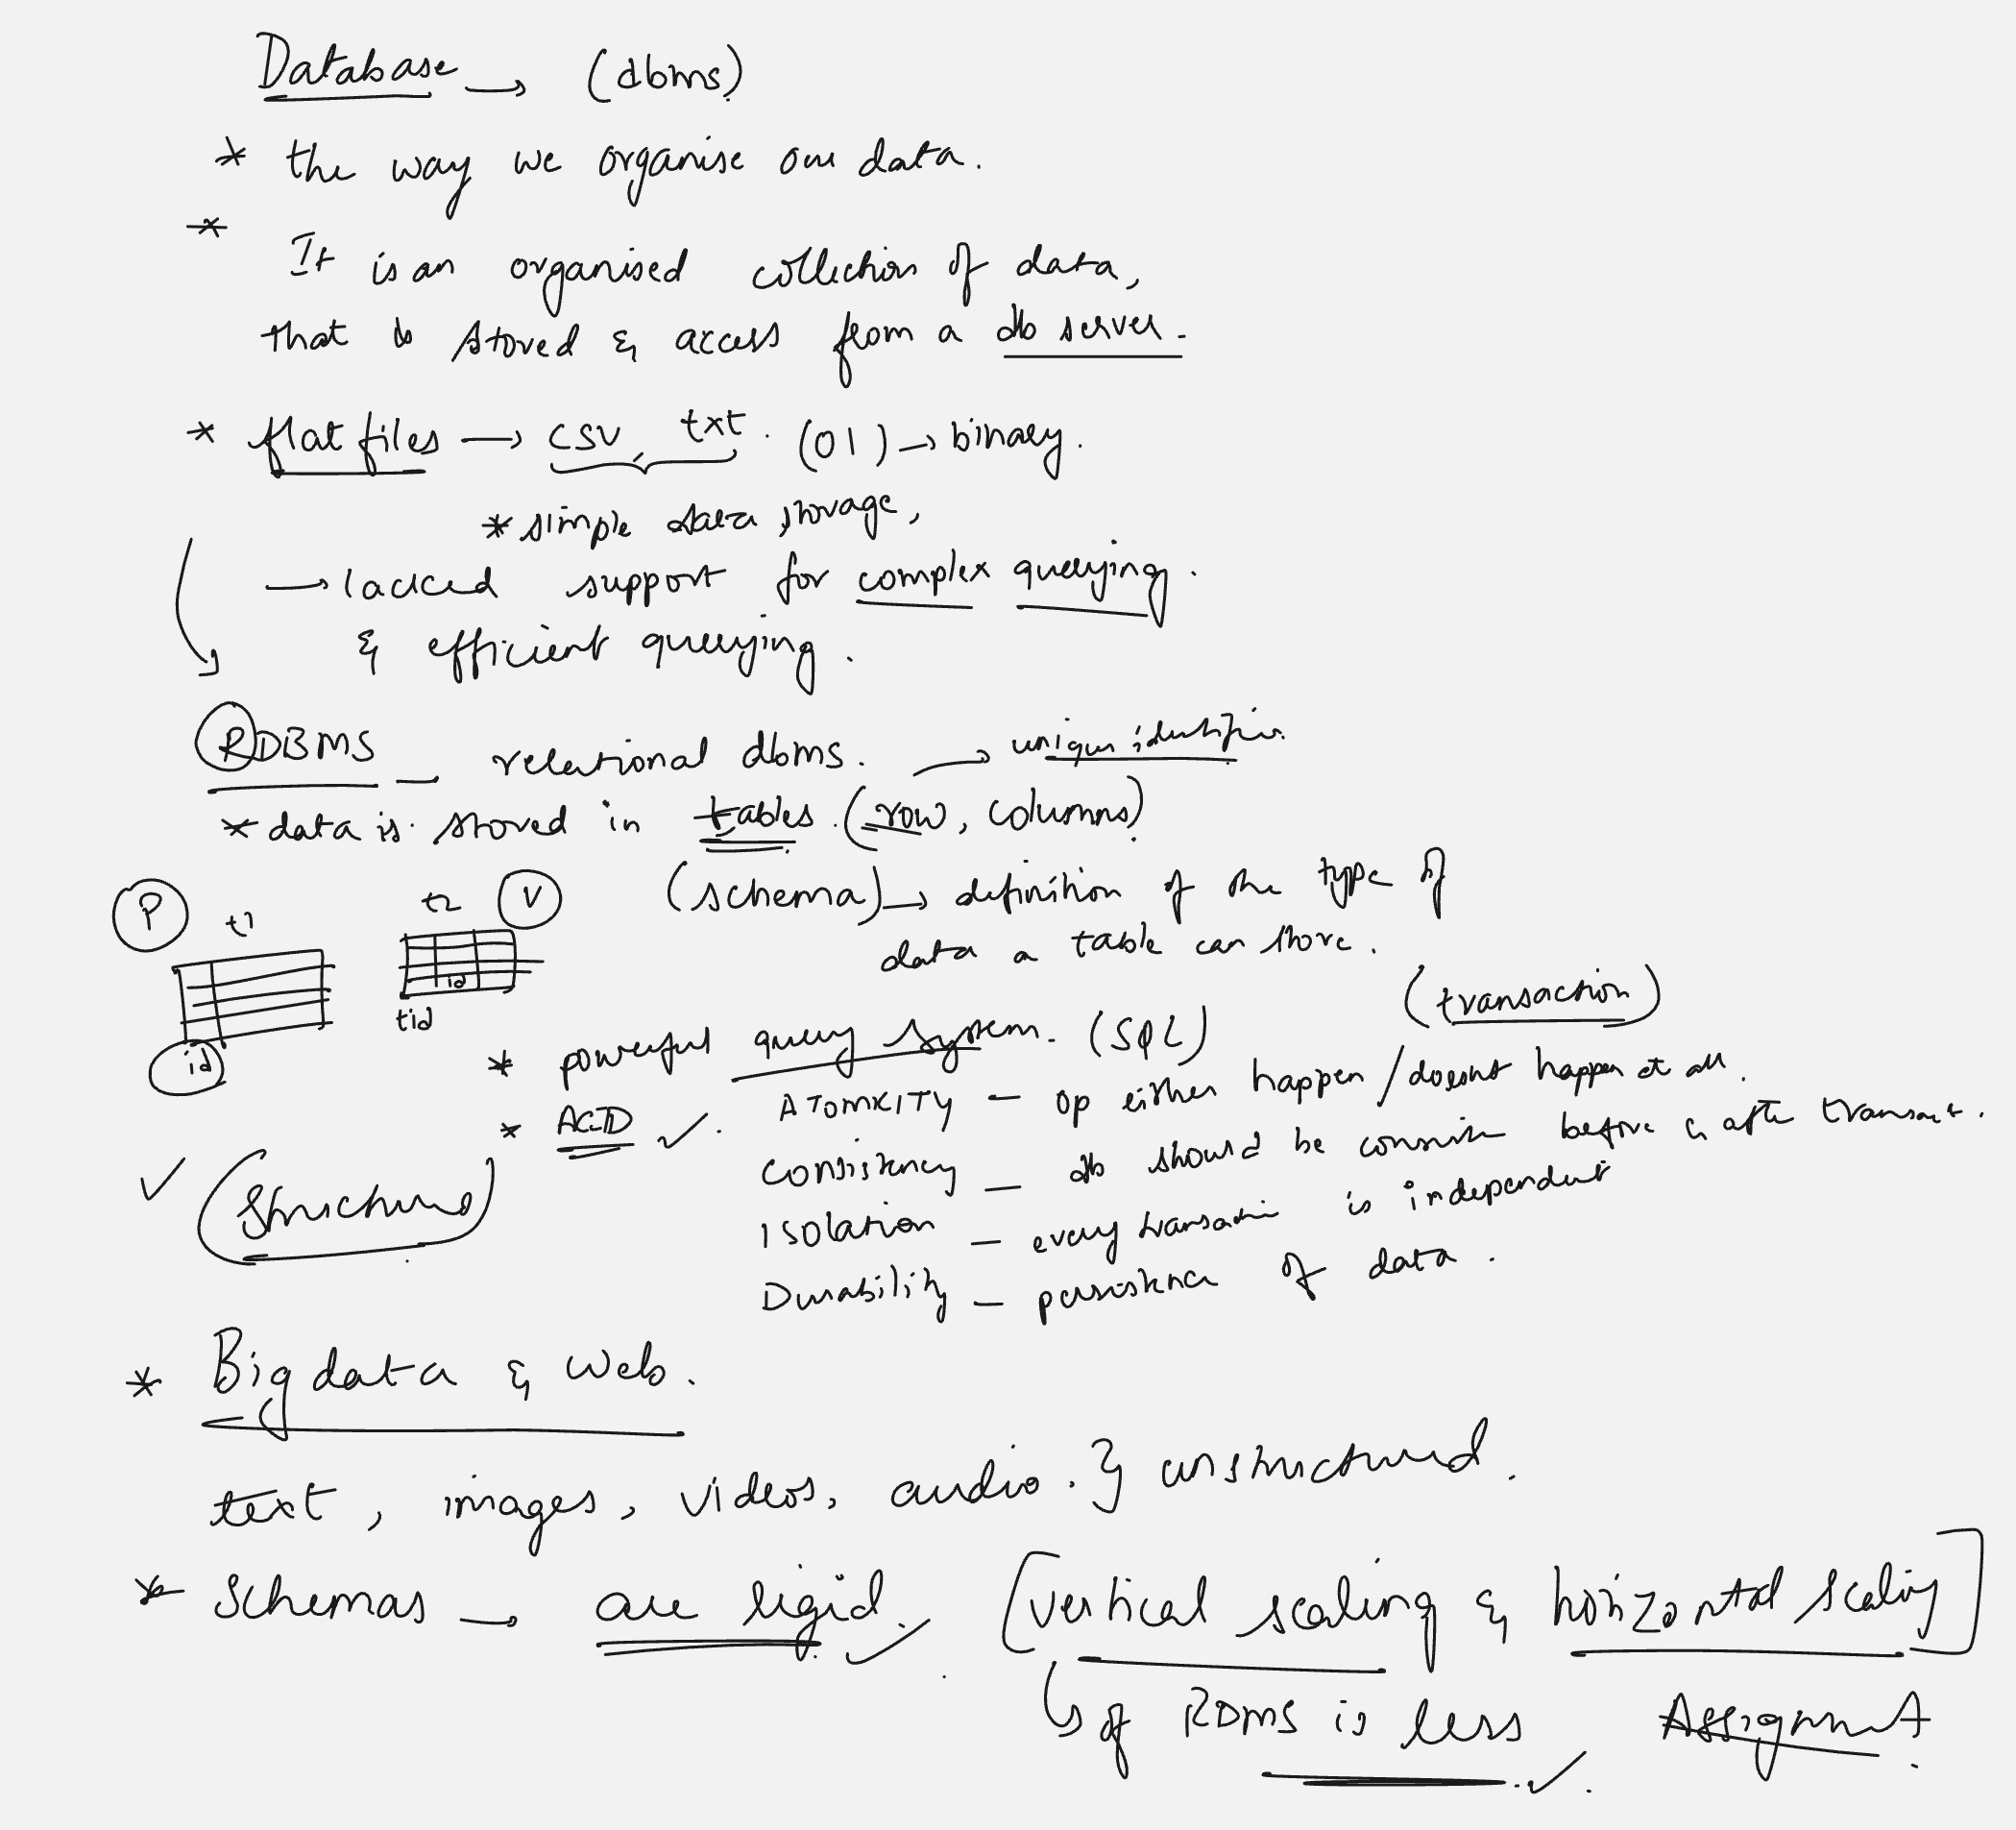 Database → (dbms)
* the way we organise our data.
* It is an organised collection of data,
that is stored & access from a db server.
* flat files → csv, txt. (01) → binary.
* simple data storage,
→ lacked support for complex querying.
& efficient querying.
RDBMS – relational dbms. → unique identifier.
* data is stored in tables. (row, columns)
(schema) → definition of the type of
data a table can store.
P t1 t2 V
id
tid
id
(transaction)
* powerful query system. (SQL)
* ACID ✓. ATOMICITY – op either happen / doesnt happen at all.
Consistency – db should be consistent before & after transact.
Isolation – every transaction is independent
Durability – persistence of data.
✓ (Structured)
* Big data & web.
text, images, videos, audio. } unstructured.
* Schemas → are rigid. ✓ [vertical scaling & horizontal scaling]
↳ of RDMS is less. ✓. Assignment.